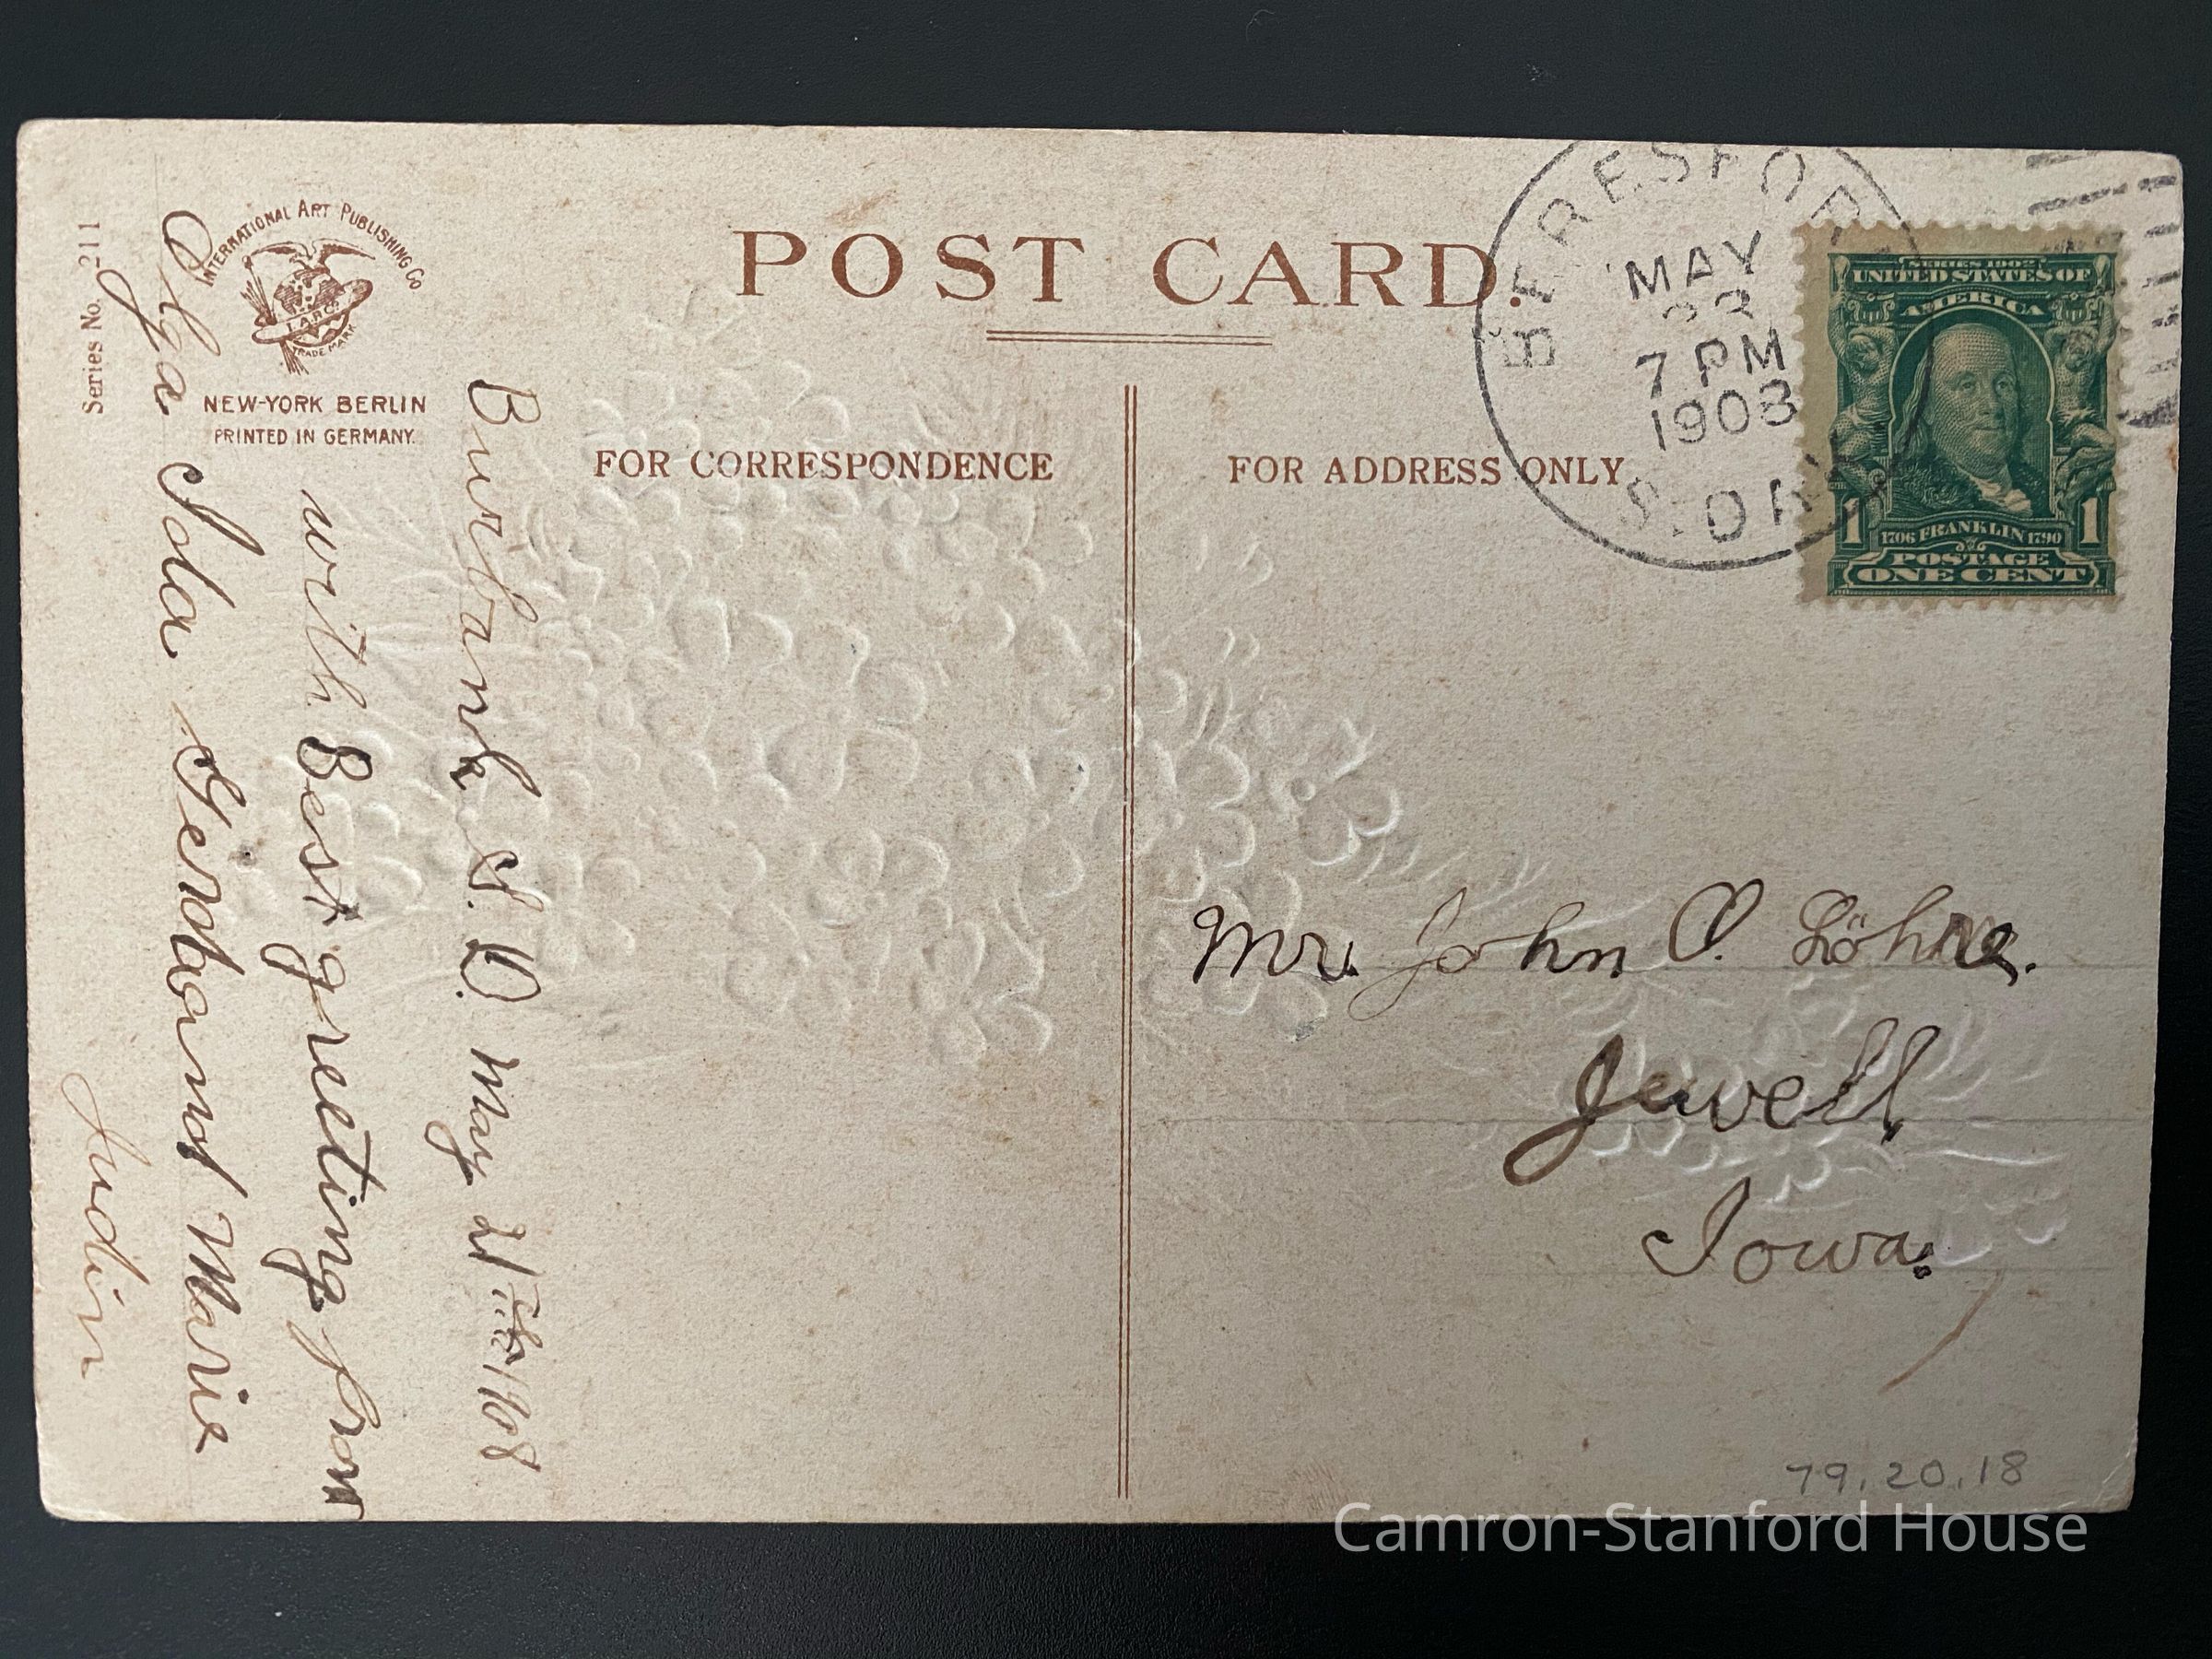 Series No. 211
INTERNATIONAL ART PUBLISHING CO.
I.A.P.C.
TRADE MARK
NEW-YORK BERLIN
PRINTED IN GERMANY.
POST CARD.
FOR CORRESPONDENCE
FOR ADDRESS ONLY.
BERESFOR
MAY
7 PM
1908
S. DAK
SERIES 1902
UNITED STATES OF
AMERICA
1 1706 FRANKLIN 1790 1
POSTAGE
ONE CENT
Burbank S. D. May 21
with Best greeting from
Olga Marie
Mr. John O. Jewell,
Iowa.
79.20.18
Camron-Stanford House